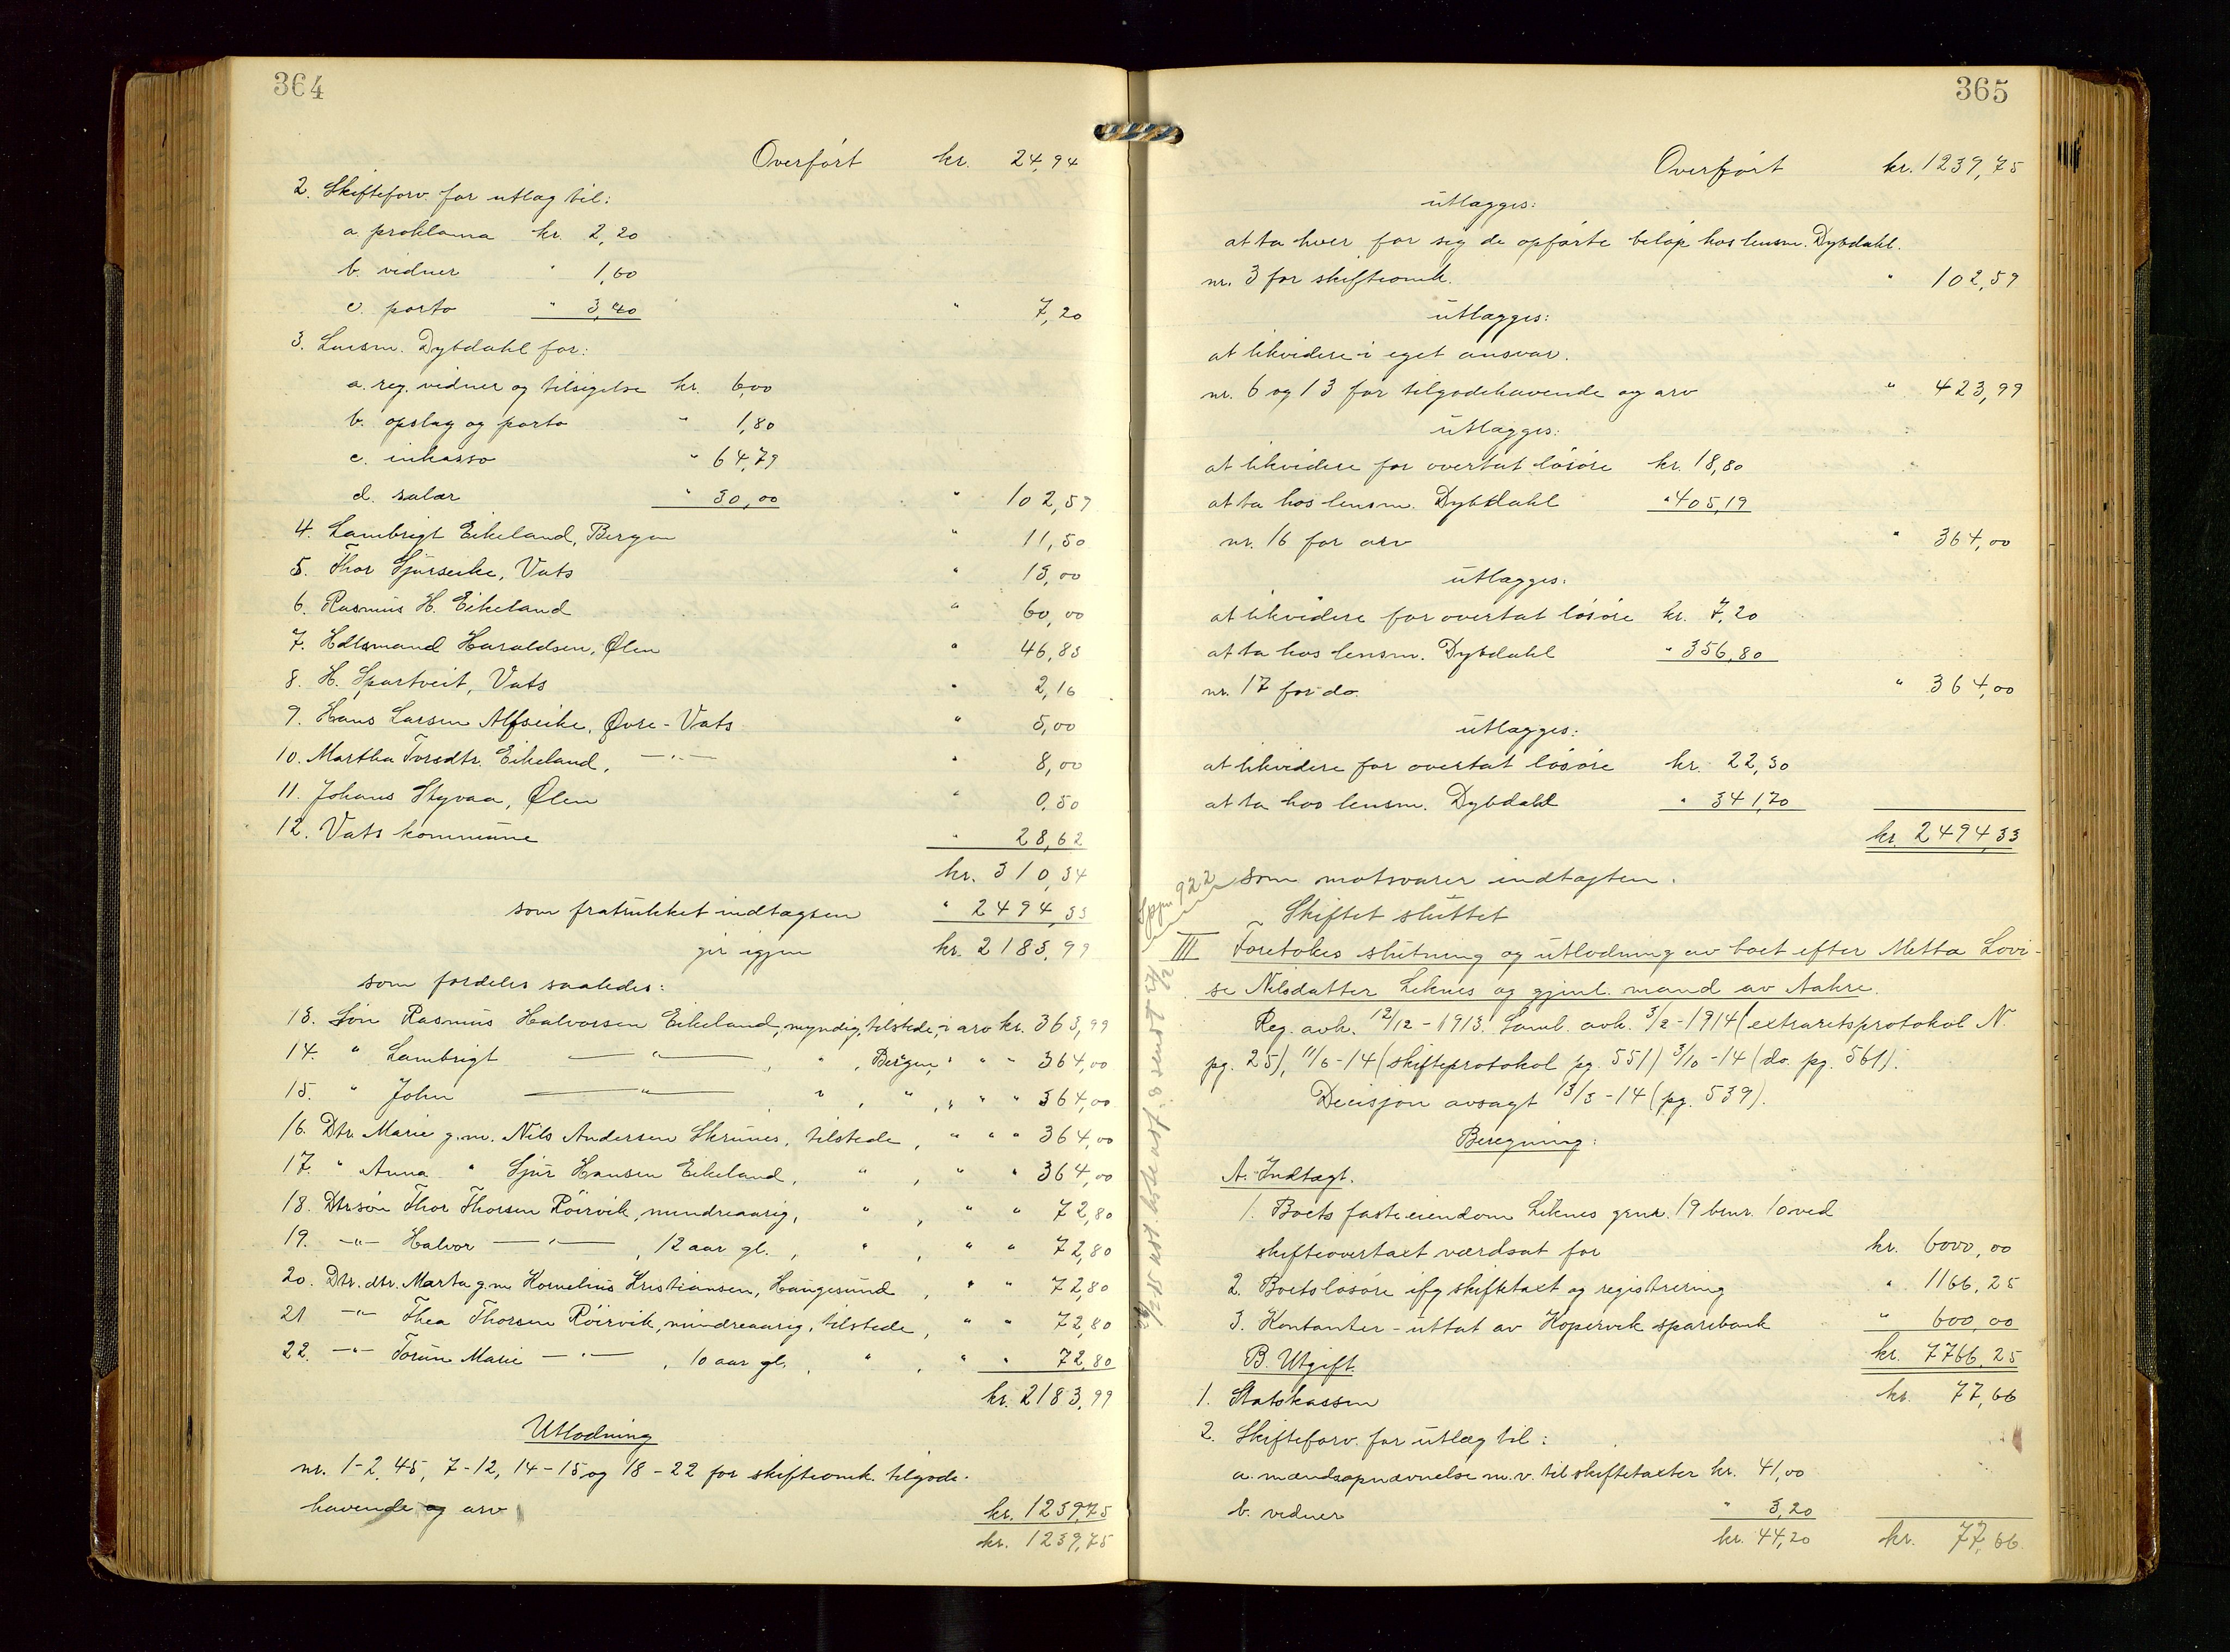 364
Overført kr. 24,94
2. Skifteforv. for utlæg til:
a. proklama kr. 2,20
b. vidner " 1,60
c. porto " 3,40 " 7,20
3. Lensm. Dybdahl for:
a. reg. vidner og tilsigelse kr. 6,00
b. opslag og porto " 1,80
c. inkasso " 64,79
d. salær " 30,00 " 102,59
4. Lambrigt Eikeland, Bergen " 11,50
5. Thor Gjerseike, Vats " 13,00
6. Rasmus H. Eikeland " 60,00
7. Hdlsmand Haraldsen, Ølen " 46,83
8. H. Spartveit, Vats " 2,16
9. Hans Larsen Alfseike, Øvre-Vats " 5,00
10. Martha Torsdtr. Eikeland, —"— " 8,00
11. Johans Styvaa, Ølen " 0,50
12. Vats kommune " 28,62
kr. 310,34
som fratrukket indtægten " 2494,33
gir igjen kr. 2183,99
som fordeles saaledes:
13. Søn Rasmus Halvorsen Eikeland, myndig, tilstede, i arv kr. 363,99
14. " Lambrigt —"— , " , Bergen, " " " 364,00
15. " John —"— , " , " , " " " 364,00
16. Dtr. Marie g.m. Nils Andersen Skrunes, tilstede, " " " 364,00
17. " Anna " Sjur Hansen Eikeland, " , " " 364,00
18. Dtrsøn Thor Thorsen Röirvik, mindreaarig, " , " " 72,80
19. —"— Halvor —"— , 12 aar gl. , " , " " 72,80
20. Dtr. dtr. Marta g.m Kornelius Kristiansen, Haugesund , " " 72,80
21 —"— Thea Thorsen Röirvik, mindreaarig, tilstede, " " 72,80
22. —"— Torun Marie —"— , 10 aar gl. , " , " " 72,80
kr. 2183,99
Utlodning
nr. 1-2, 4-5, 7-12, 14-15 og 18-22 for skifteomk. tilgode-
havende og arv kr. 1239,75
kr. 1239,75
365
Overført kr. 1239,75
utlægges:
at ta hver for sig de opførte beløp hos lensm. Dybdahl.
nr. 3 for skifteomk. " 102,59
utlægges:
at likvidere i eget ansvar.
nr. 6 og 13 for tilgodehavende og arv " 423,99
utlægges:
at likvidere for overtat løsøre kr. 18,80
at ta hos lensm. Dybdahl " 405,19
nr. 16 for arv " 364,00
utlægges:
at likvidere for overtat løsøre kr. 7,20
at ta hos lensm. Dybdahl " 356,80
nr. 17 for do. " 364,00
utlægges:
at likvidere for overtat løsøre kr. 22,30
at ta hos lensm. Dybdahl " 341,70
kr. 2494,33
som motsvarer indtægten.
Skiftet sluttet
III Foretokes slutning og utlodning av boet efter Metta Lovi-
se Nilsdatter Leknes og gjenl. mand av Aakre.
Reg. avh. 12/12-1913. Saml. avh. 3/2-1914 (extraretsprotokol N.
pg. 25), 11/6-14 (skifteprotokol pg. 551) 3/10-14 (do. pg. 561).
Decisjon avsagt 13/3-14 (pg. 539).
Beregning:
A. Indtægt.
1. Boets faste eiendom Leknes grnr. 19 brnr. 10 ved
skifteovertaxt værdsat for kr. 6000,00
2. Boets løsøre ifg skiftetaxt og registrering " 1166,25
3. Kontanter - uttat av Kopervik sparebank " 600,00
kr. 7766,25
B. Utgift.
1. Statskassen kr. 77,66
2. Skifteforv. for utlæg til:
a. mændsopnævnelse m.v. til skiftetaxter kr. 41,00
b. vidner " 3,20
kr. 44,20 kr. 77,66.